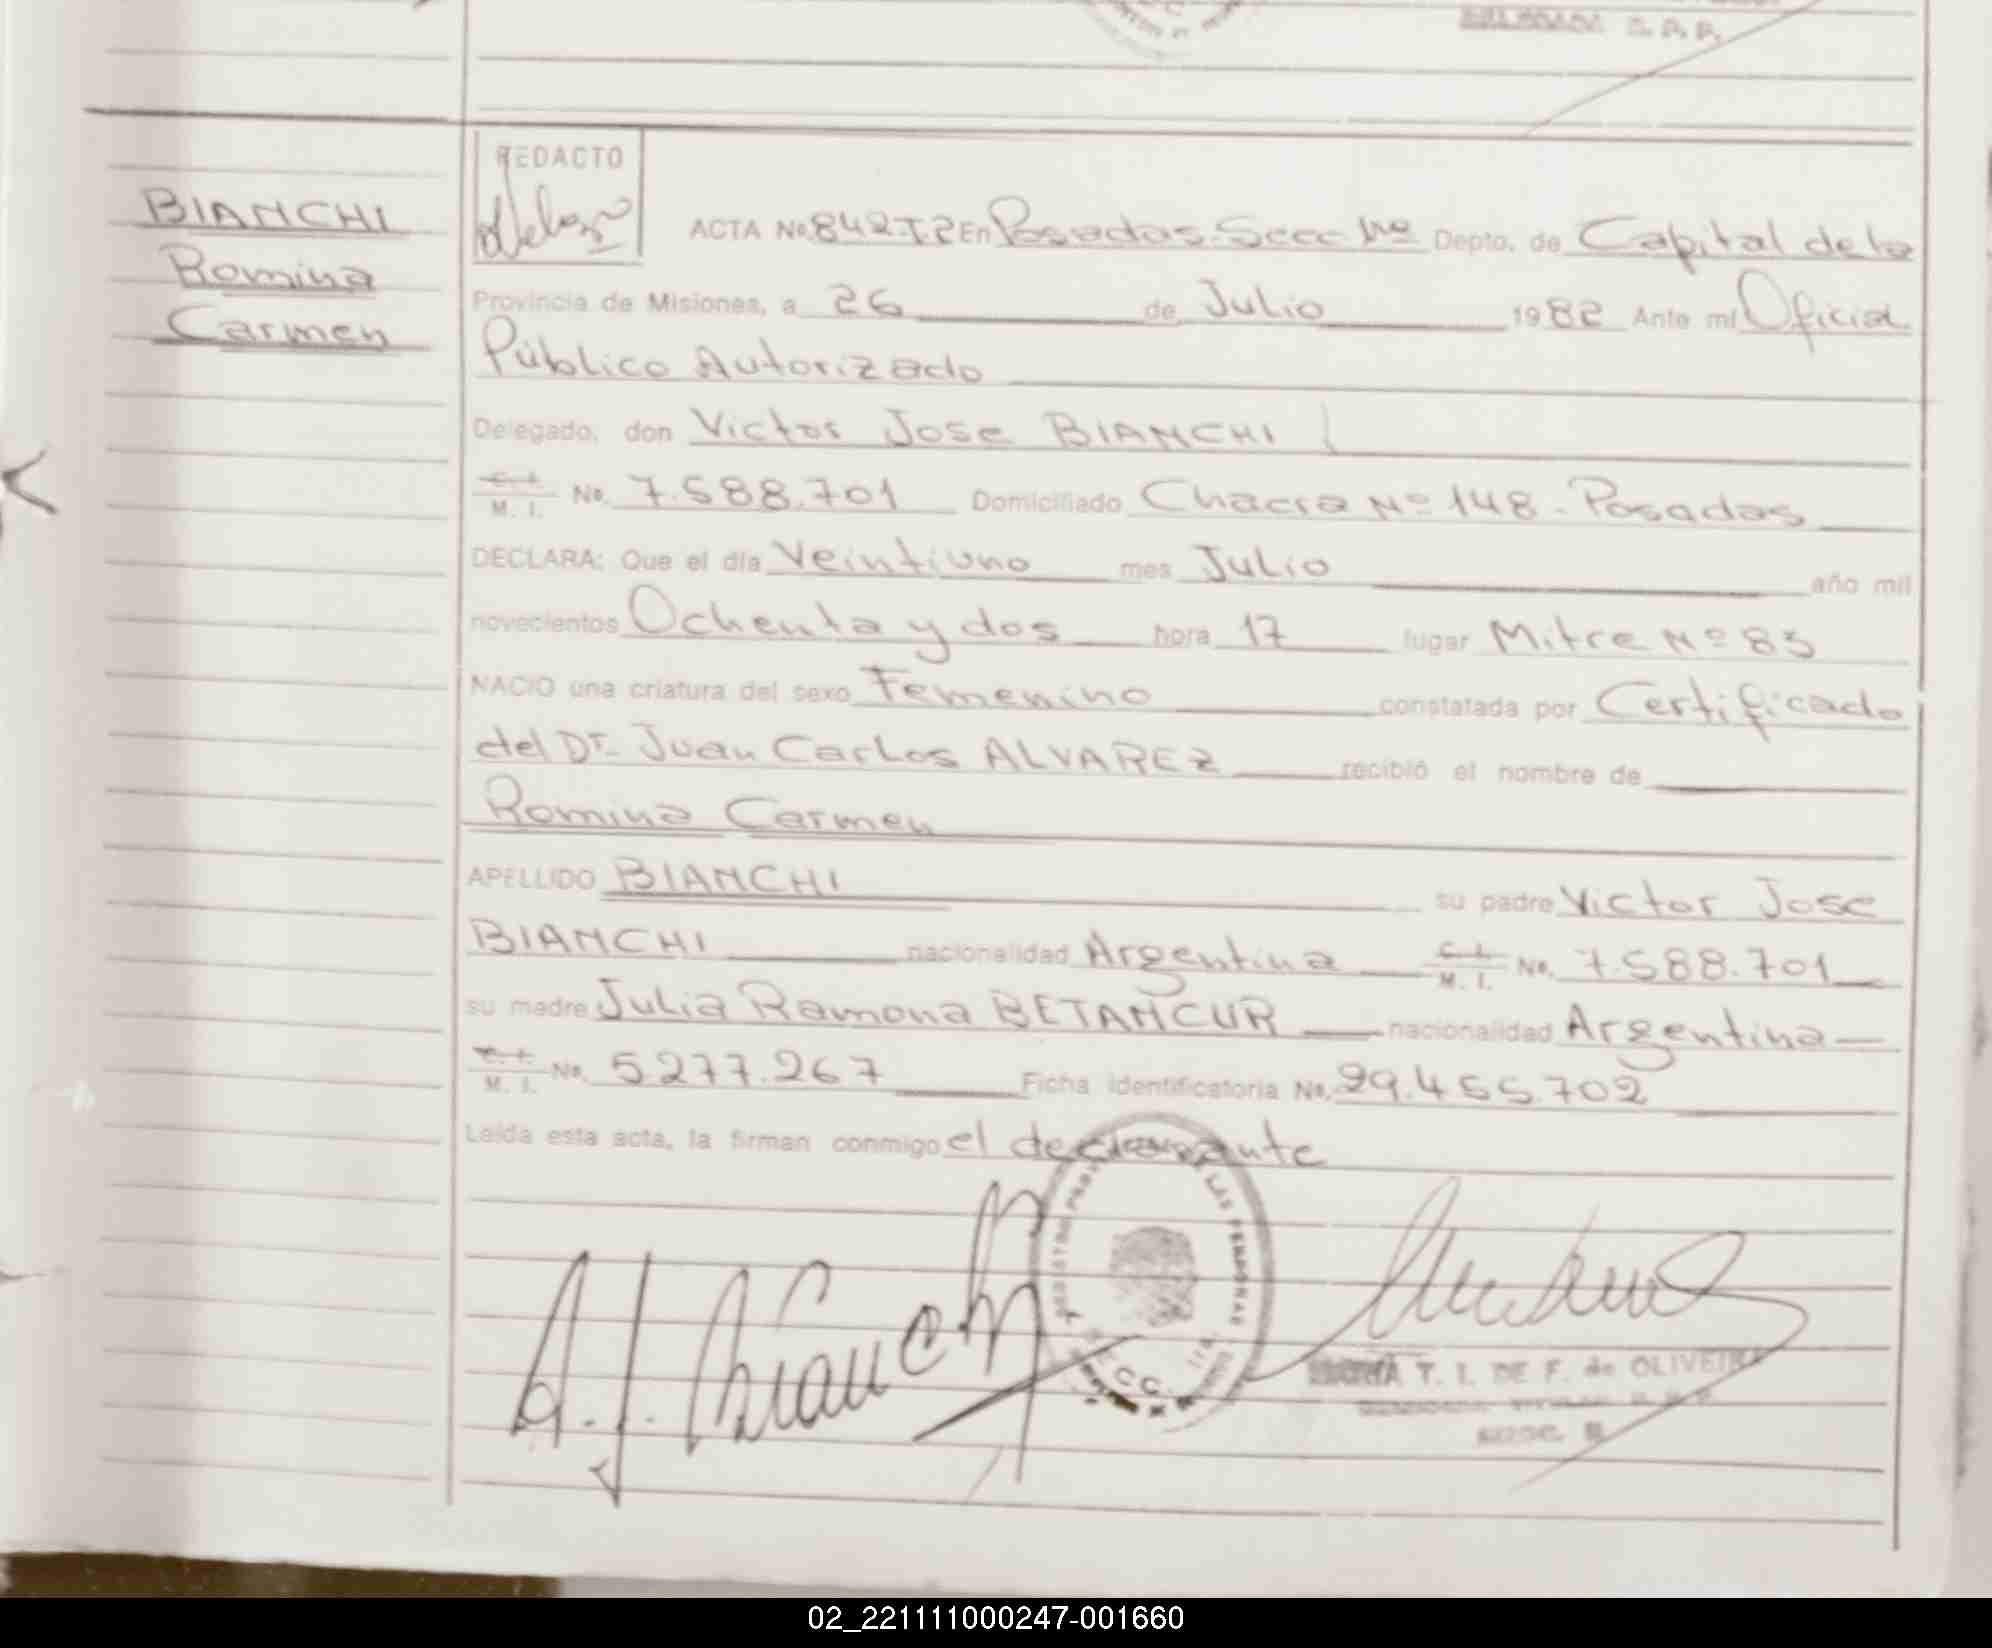 BIANCHI
Romina
Carmen
REDACTO
ACTA No. 842 T.2 En Posadas. Secc Nº Depto. de Capital de la
Provincia de Misiones, a 26 de Julio 1982 Ante mi Oficial
Público Autorizado
Delegado, don Victor Jose BIANCHI
C. I. M. I. No. 7.588.701 Domiciliado Chacra Nº 148. Posadas
DECLARA: Que el día Veintiuno mes Julio año mil
novecientos Ochenta y dos hora 17 lugar Mitre Nº 83
NACIO una criatura del sexo Femenino constatada por Certificado
del Dr. Juan Carlos ALVAREZ recibió el nombre de
Romina Carmen
APELLIDO BIANCHI su padre Victor Jose
BIANCHI nacionalidad Argentina C. I. M. I. No. 7.588.701
su madre Julia Ramona BETANCUR nacionalidad Argentina
C. I. M. I. No. 5.277.267 Ficha identificatoria No. 29.455.702
Leída esta acta, la firman conmigo el declarante
LAS PERSONAS
T. I. DE F. de OLIVEIRA
02_221111000247-001660